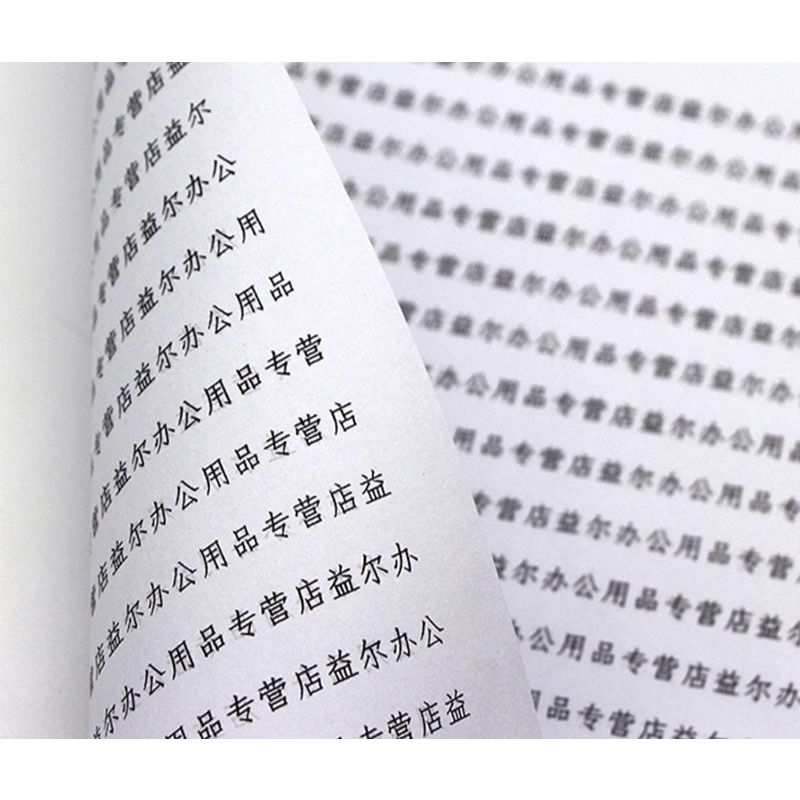 专营店益
专营店益尔
专营店益尔办公
专营店益尔办公用
店益尔办公用品
店益尔办公用品专营
益尔办公用品专营店
店益尔办公用品专营店益
店益尔办公用品专营店益尔办
益尔办公用品专营店益尔办公
用品专营店益尔办公用品专营店益
专营店益尔办公用
益尔办公用品专营店益尔办公用品
益尔办公用品专营店益尔办公用品
办公用品专营店益尔办公用品专营
公用品专营店益尔办公用品专营店
用品专营店益尔办公用品专营店
益尔办公用品专营店益尔办
营店益尔办公用品专营店益尔
办公用品专营店益尔办公
用品专营店益尔办公用品专
专营店益尔办公用品专营
益尔办公用品专营店益尔
办公用品专营店益尔办
品专营店益尔办公